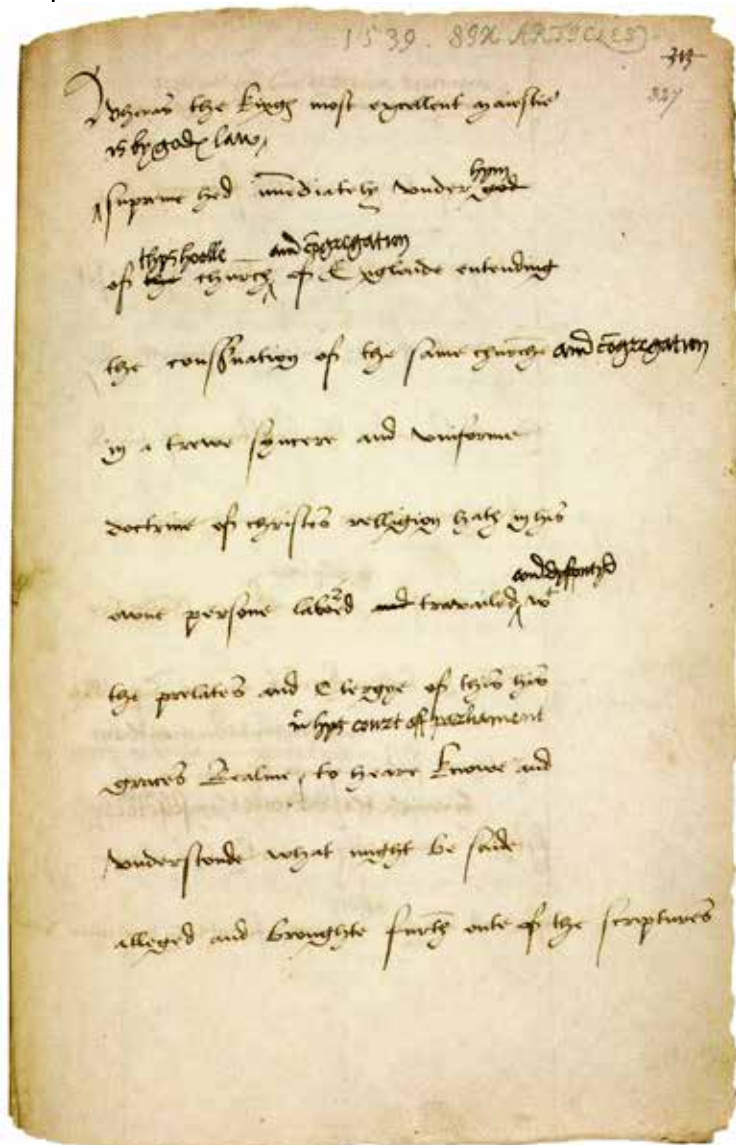 1539. SIX ARTICLES
313
327
Wheras the kinges most excellent maiestie
is by gods law,
supreme hed imediately under god
hym
thys hoolle and cõgregation
of the church of Englande entending
the consservation of the same churche and cõgregation
in a trewe syncere and uniforme
doctrine of christes relligion hath in his
and dysputyd
owne persone labored and travailed wt
the prelates and Clergye of this his
in hys court off parliament
graces Realme, to heare knowe and
understonde what might be saide
alleged and broughte furth oute of the scriptures